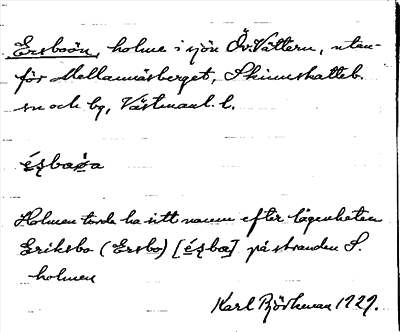 Ersboön, holme i sjön Öv. Vättern, utan-
för Mellannäsberget, Skinnskatteb.
sn och bg, Västmanl. l.
Holmen torde ha sitt namn efter lägenheten
Eriksbo (Ersbo) [éʂbo] på stranden S.
holmen
Karl Björkman 1929.